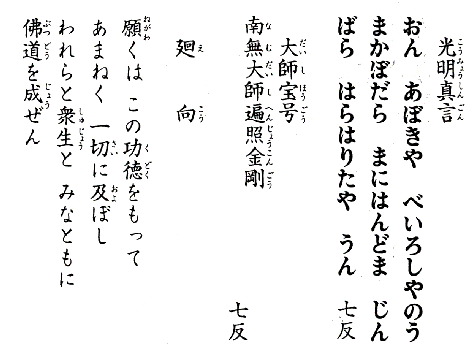 光明真言
おん　あぼきや　べいろしやのう
まかぼだら　まにはんどま　じん
ばら　はらはりたや　うん　七反
大師宝号
南無大師遍照金剛　七反
廻向
願くは　この功徳をもって
あまねく　一切に及ぼし
われらと衆生と　みなともに
佛道を成ぜん